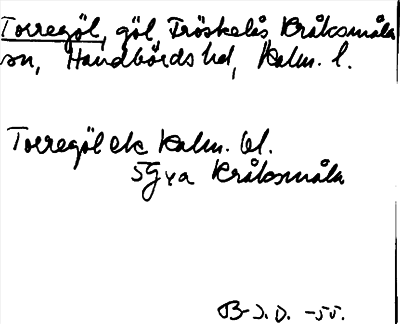 Torregöl, göl, Tröskelås Kråksmåla
sn, Handbörds hd, Kalm. l.
Torregöl ek Kalm. bl.
5G ya Kråksmåla
B-J.D. -55.